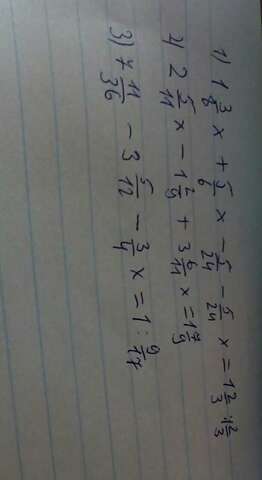 1) 1 3/8 x + 5/6 x − 5/24 − 5/24 x = 1 2/3 : 1 2/3
2) 2 5/11 x − 1 2/9 + 3 6/11 x = 1 7/9
3) 7 11/36 − 3 5/12 − 3/4 x = 1 : 9/17